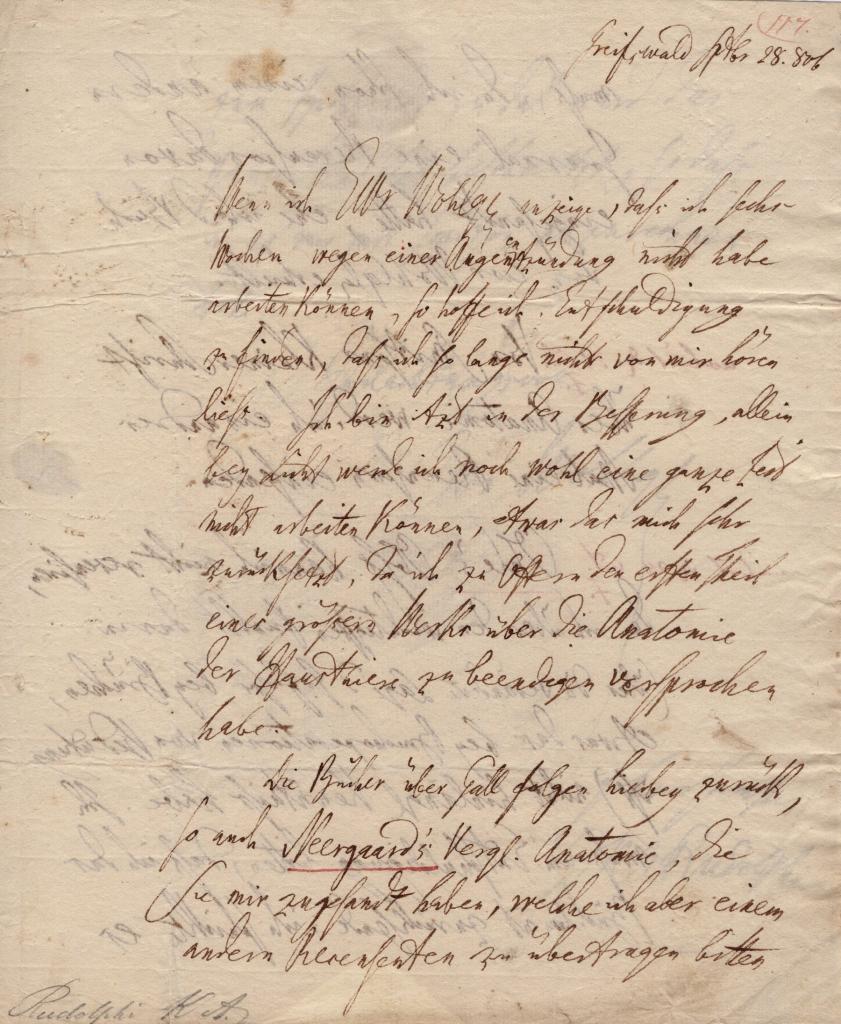 117.
Greifswald Sptbr 28. 806
Wenn ich Ewr Wohlg. anzeige, daß ich sechs
Wochen wegen einer Augenentzündung nicht habe
arbeiten können, so hoffe ich Entschuldigung
zu finden, daß ich so lange nichts von mir hören
ließ. Ich bin jetzt in der Besserung, allein
bey Licht werde ich noch wohl eine ganze Zeit
nicht arbeiten können, etwas das mich sehr
zurücksetzt, da ich zu Ostern den ersten Theil
eines größern Werks über die Anatomie
der Hausthiere zu beendigen versprochen
habe.
Die Bücher über Gall folgen hierbey zurück,
so auch Neergaard's Vergl. Anatomie, die
Sie mir zugesandt haben, welche ich aber einem
andern Recensenten zu übertragen bitten
Rudolphi K A.